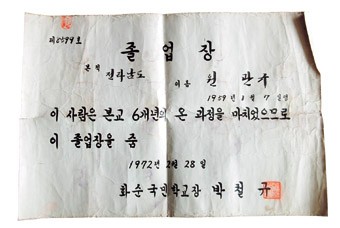 제8599호
졸업장
본적 전라남도
이름 원관
1959년 1월 7일생
이 사람은 본교 6개년의 온 과정을 마치었으므로
이 졸업장을 줌
1972년 2월 28일
화순국민학교장 박철규